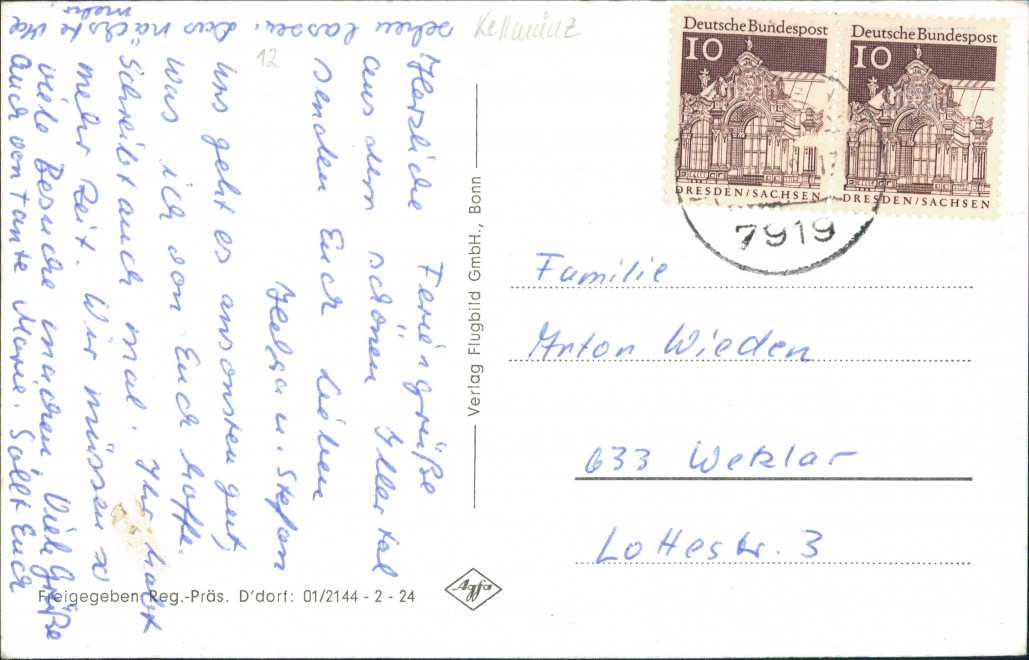 Herzliche Feriengrüße
aus dem schönen Illertal
senden Euch Lieben
Helga u. Stefan
Uns geht es ansonsten gut,
was ich von Euch hoffe.
Schreibt auch mal. Ihr habt
mehr Zeit. Wir müssen so
viele Besuche machen. Viele Grüße
auch von Tante Marie. Sollt Euch
mehr
sehen lassen. Das nächste
Kellmünz
12
Verlag Flugbild GmbH., Bonn
Deutsche Bundespost
10
DRESDEN/SACHSEN
Deutsche Bundespost
10
DRESDEN/SACHSEN
7919
Familie
Anton Wieden
633 Wetzlar
Lottestr. 3
Freigegeben Reg.-Präs. D'dorf: 01/2144 - 2 - 24
Agfa